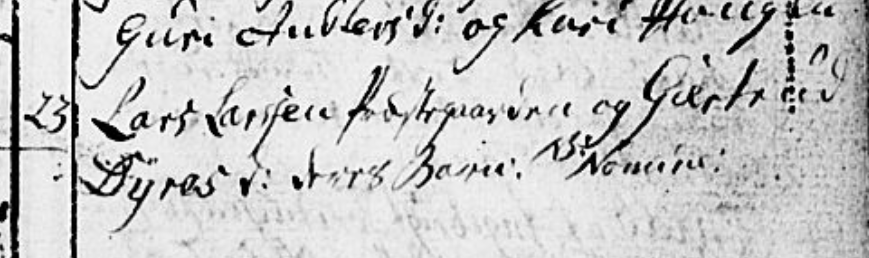 Guri Anders d: og Kari Hougen
23 Lars Larssen Præstegaarden og Giertrud
Dÿres d: deres Barn: NB: Nomine: